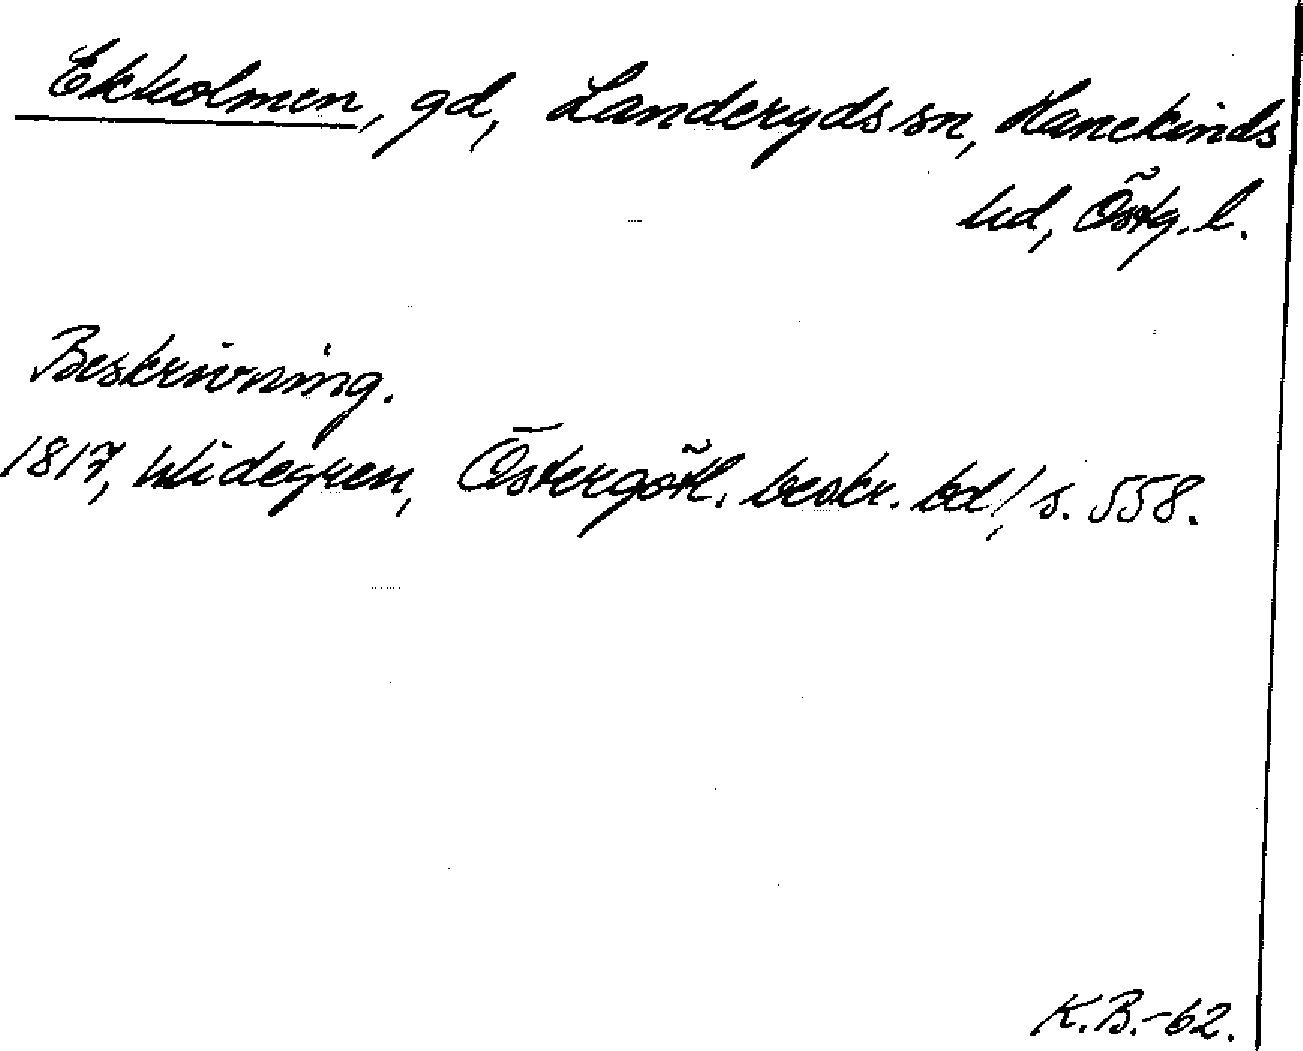 Ekholmen, gd, Landeryds sn, Hanekinds
hd, Östg. l.
Beskrivning.
1817, Widegren, Östergötl. beskr. bd 1, s. 558.
K.B.-62.